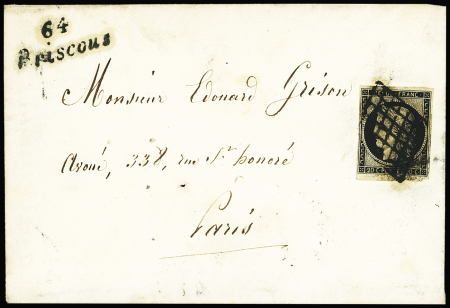 64
Briscous
Monsieur Edouard Grison
Avoué, 338, rue St honoré
Paris